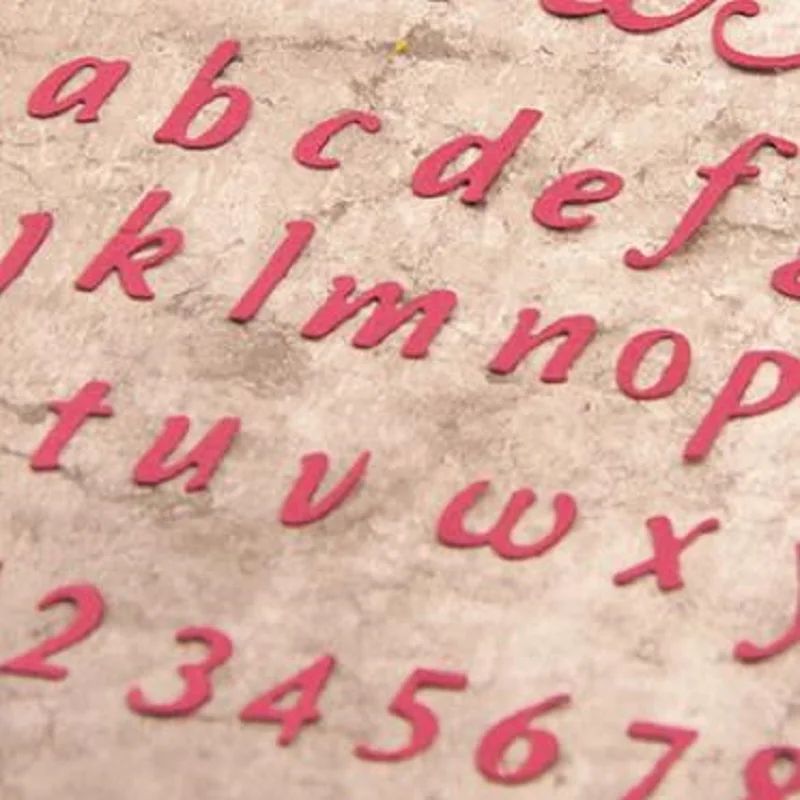 a b c d e f g
j k l m n o p
t u v w x y
2 3 4 5 6 7 8